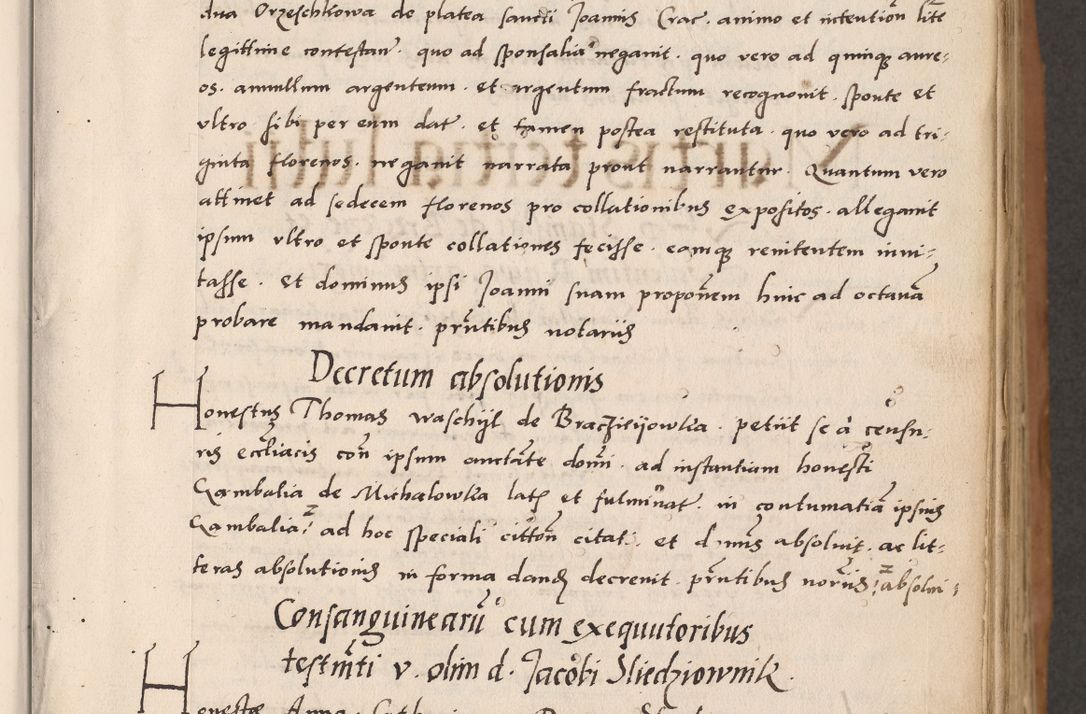 dua Orzeschkowa de platea sancti Joannis Crac. animo et intentiõn lite
legittime contestan̄. quo ad sponsalia neganit. quo vero ad quinqȝ aure-
os. annullum argenteum. et argentum fractum recognouit. sponte et
vltro sibi per eum dat. et tamen postea restituta. quo vero ad tri-
ginta florenos. negauit narrata prout narrantur. Quantum vero
attinet ad sedecem florenos pro collationibus expositos. allegauit
ipsum vltro et sponte collationes fecisse. eamqȝ renitentem inui-
tasse. et dominus ipsi Joanni suam proponēm huic ad octauā
probare mandauit. pn̄tibus notariis
Decretum absolutionis
Honestus Thomas waschyl de Braczieyowka. petiit se à censu-
ris eccliacis con̄ ipsum auctāte domi. ad instantiam honesti
Gambalia de Michalowka latȝ et fulminat. in contumatiā ipsius
Gambalia ad hoc speciali citton̄ citat. et d.nus absoluit. ac lit-
teras absolutionis in forma dandȝ decreuit. pn̄tibus noriis absolui-
Consanguinearū cum exequutoribus
testmti v. olim d. Jacobi Sliedziownik.
Honestæ Anna